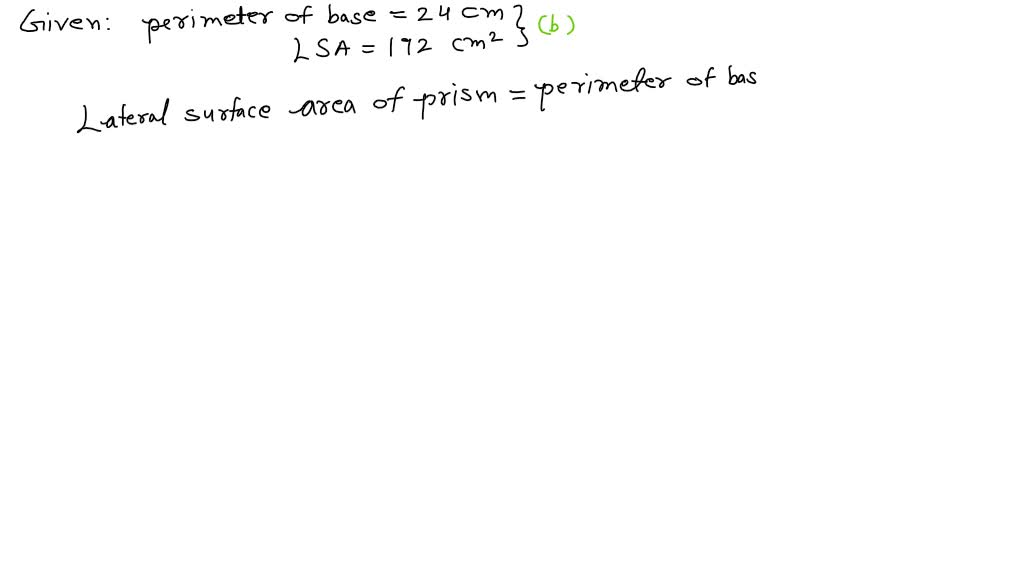 Given: perimeter of base = 24 cm } (b)
LSA = 192 cm²
Lateral surface area of prism = perimeter of bas